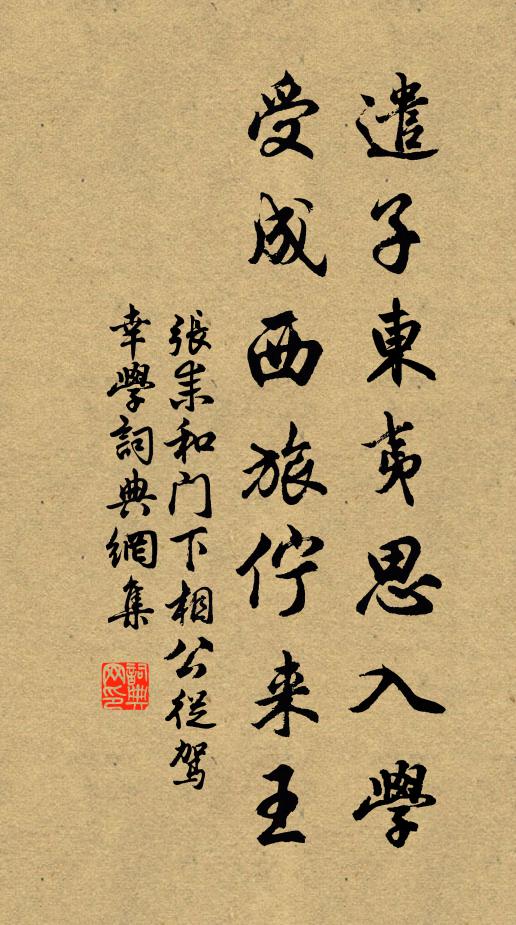 遣子東夷思入學
受成西旅佇来王
張耒和门下相公從駕
幸學詞典網集
詞典
网印